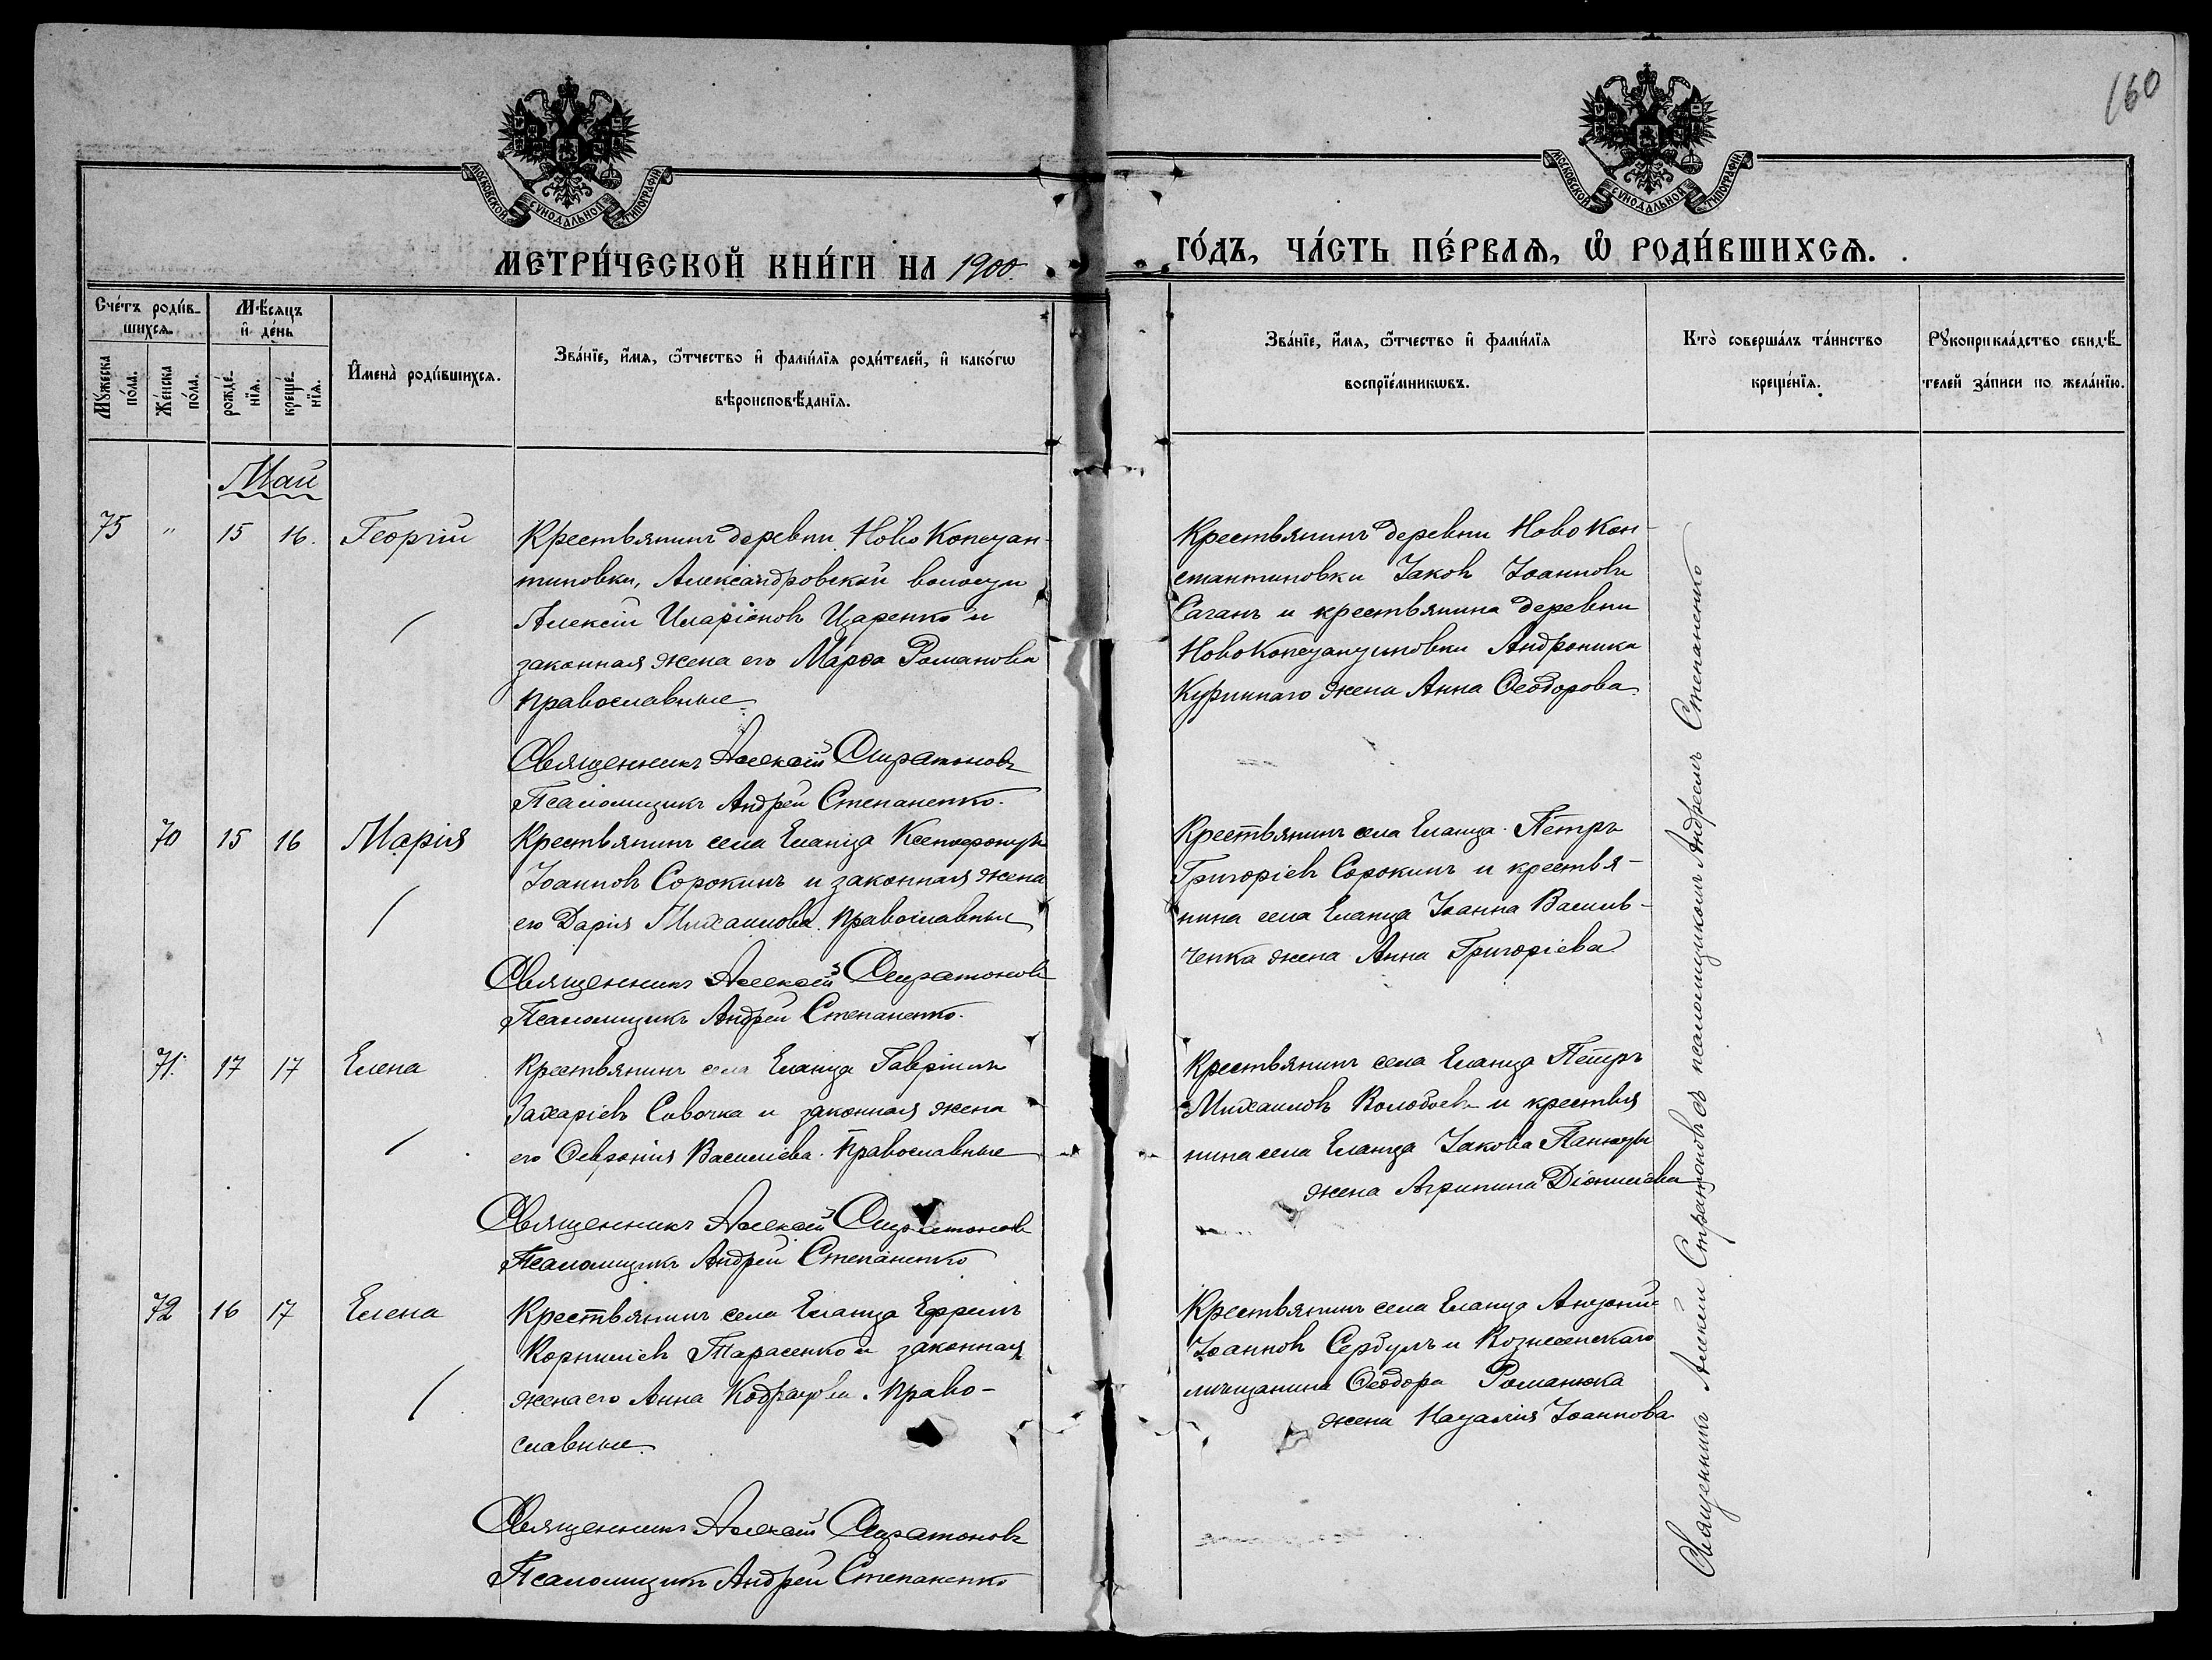 160
МОСКОВСКОЙ СѴНОДАЛЬНОЙ ТИПОГРАФІИ
МОСКОВСКОЙ СѴНОДАЛЬНОЙ ТИПОГРАФІИ
МЕТРИ́ЧЕСКОЙ КНИ́ГИ НА 1900
ГО́ДЪ, ЧА́СТЬ ПЕ́РВАѦ, Ѽ РОДИ́ВШИХСѦ.
Сче́тъ роди́в-
шихсѧ.
Мꙋжеска по́ла.
Же́нска по́ла.
Мѣ́сѧцъ
и҆ де́нь
рожде́-
нїѧ.
креще́-
нїѧ.
И҆мена̀ роди́вшихсѧ.
Зва́нїе, и҆́мѧ, ѻ҆́тчество и҆ фами́лїѧ роди́телей, и҆ како́гѡ
вѣроисповѣ́данїѧ.
Зва́нїе, и҆́мѧ, ѻ҆́тчество и҆ фами́лїѧ
воспрїе́мникѡвъ.
Кто̀ соверша́лъ та́инство
креще́нїѧ.
Рꙋкоприкла́дство свидѣ́-
телей за́писи по жела́нїю.
Май
75 " 15 16. Георгій
Крестьянинъ деревни Ново Констан-
тиновки, Александровской волости
Алексій Иларіоновъ Царенко и
законная жена его Марѳа Романова
православные.
Священникъ Алексій Стратоновъ
Псаломщикъ Андрей Степаненко.
Крестьянинъ деревни Ново Кон-
стантиновки Іаковъ Іоанновъ
Саганъ и крестьянина деревни
Ново Константиновки Андроника
Куриннаго жена Анна Ѳеодорова.
70 15 16 Марія
Крестьянинъ села Еланца Ксенофонтъ
Іоанновъ Сорокинъ и законная жена
его Дарія Михаилова. православные
Священникъ Алексій Стратоновъ
Псаломщикъ Андрей Степаненко.
Крестьянинъ села Еланца Петръ
Григоріевъ Сорокинъ и крестья-
нина села Еланца Іоанна Василь-
ченка жена Анна Григоріева
71. 17 17 Елена
Крестьянинъ села Еланца Гавріилъ
Захаріевъ Савочка и законная жена
его Ѳевронія Василіева. православные
Священникъ Алексій Стратоновъ
Псаломщикъ Андрей Степаненко
Крестьянинъ села Еланца Петръ
Михаиловъ Волобоевъ и крестья
нина села Еланца Іакова
жена Агрипина Діонисіева
72 16 17 Елена
Крестьянинъ села Еланца Ефремъ
Корниліевъ Тарасенко и законная
жена его Анна Кодратова. право-
славные.
Священникъ Алексій Стратоновъ
Псаломщикъ Андрей Степаненко
Крестьянинъ села Еланца Антоній
Іоанновъ Сербулъ и Вознесенскаго
мѣщанина Ѳеодора Романюка
жена Наталія Іоаннова
Священникъ Алексій Стратоновъ съ псаломщикомъ Андреемъ Степаненко